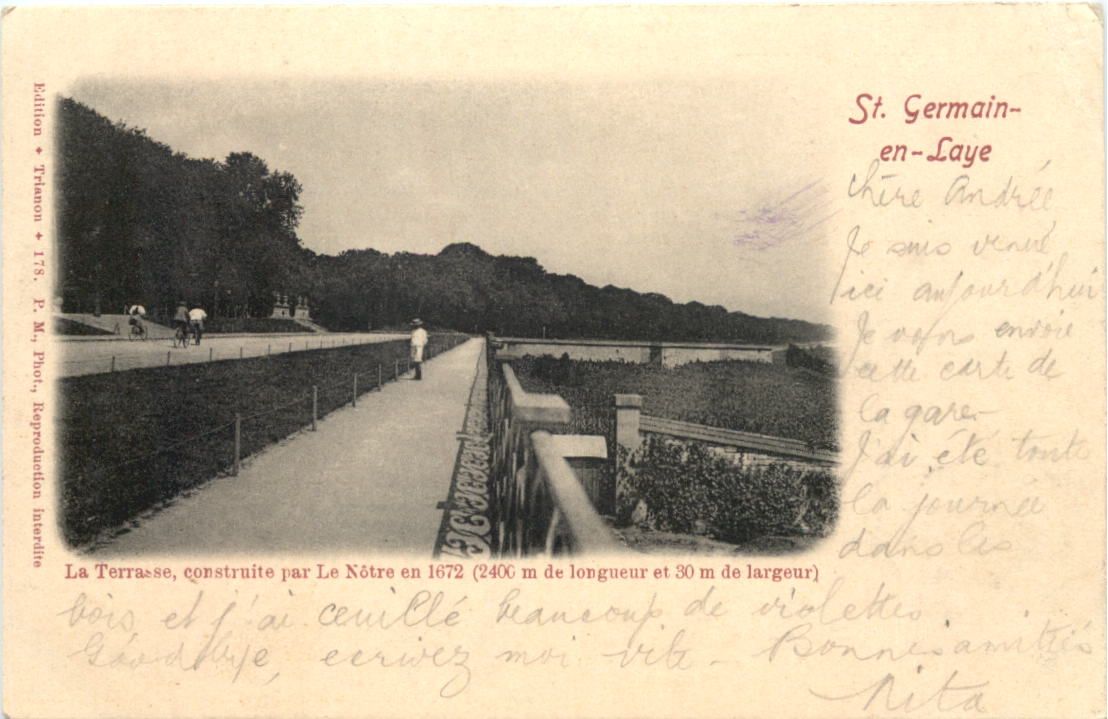 St. Germain-
en-Laye
Edition ✦ Trianon ✦ 178. P. M., Phot., Reproduction interdite
Chère Andrée
Je suis venue
ici aujourd'hui
Je vous envoie
cette carte de
la gare
J'ai été toute
la journée
dans les
La Terrasse, construite par Le Nôtre en 1672 (2400 m de longueur et 30 m de largeur)
bois et j'ai ceuillé beaucoup de violettes
Goodbye, ecrivez moi vite - Bonnes amitiés
Rita